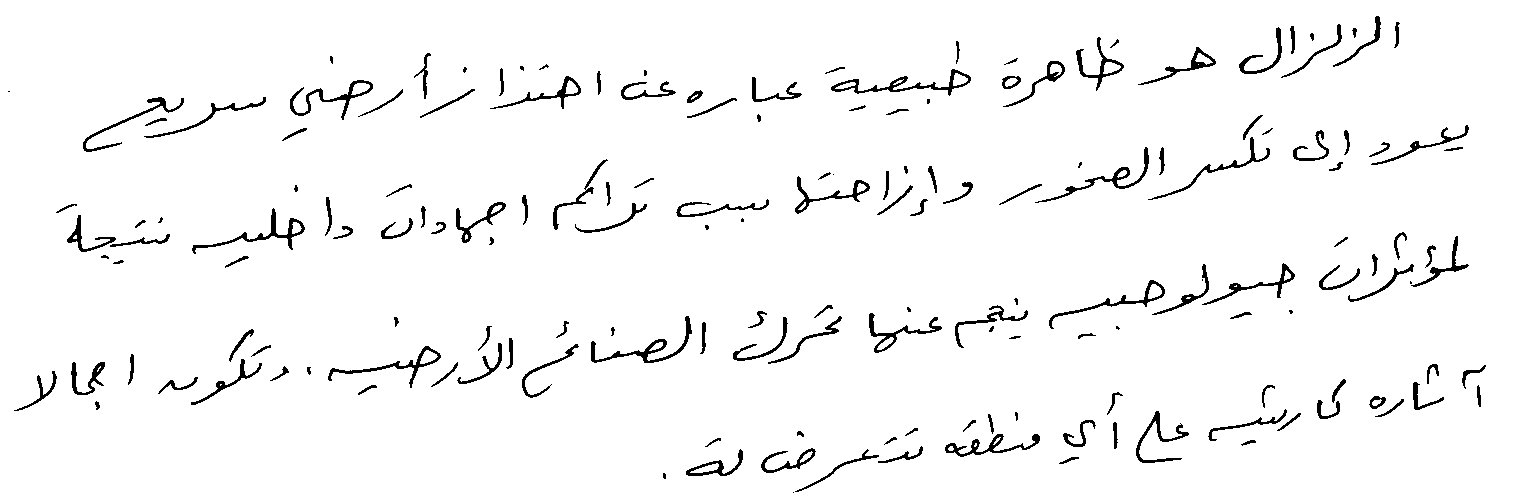 الزلزال هو ظاهرة طبيعية عباره عن اهتزاز أرضي سريع
يعود إلى تكسر الصخور وإزاحتها بسبب تراكم اجهادات داخليه نتيجة
لمؤثرات جيولوجييه ينجم عنها تحرك الصفائح الأرضيه. وتكون اجمالا
آثاره كارثيه على أي منطقه تتعرض له.